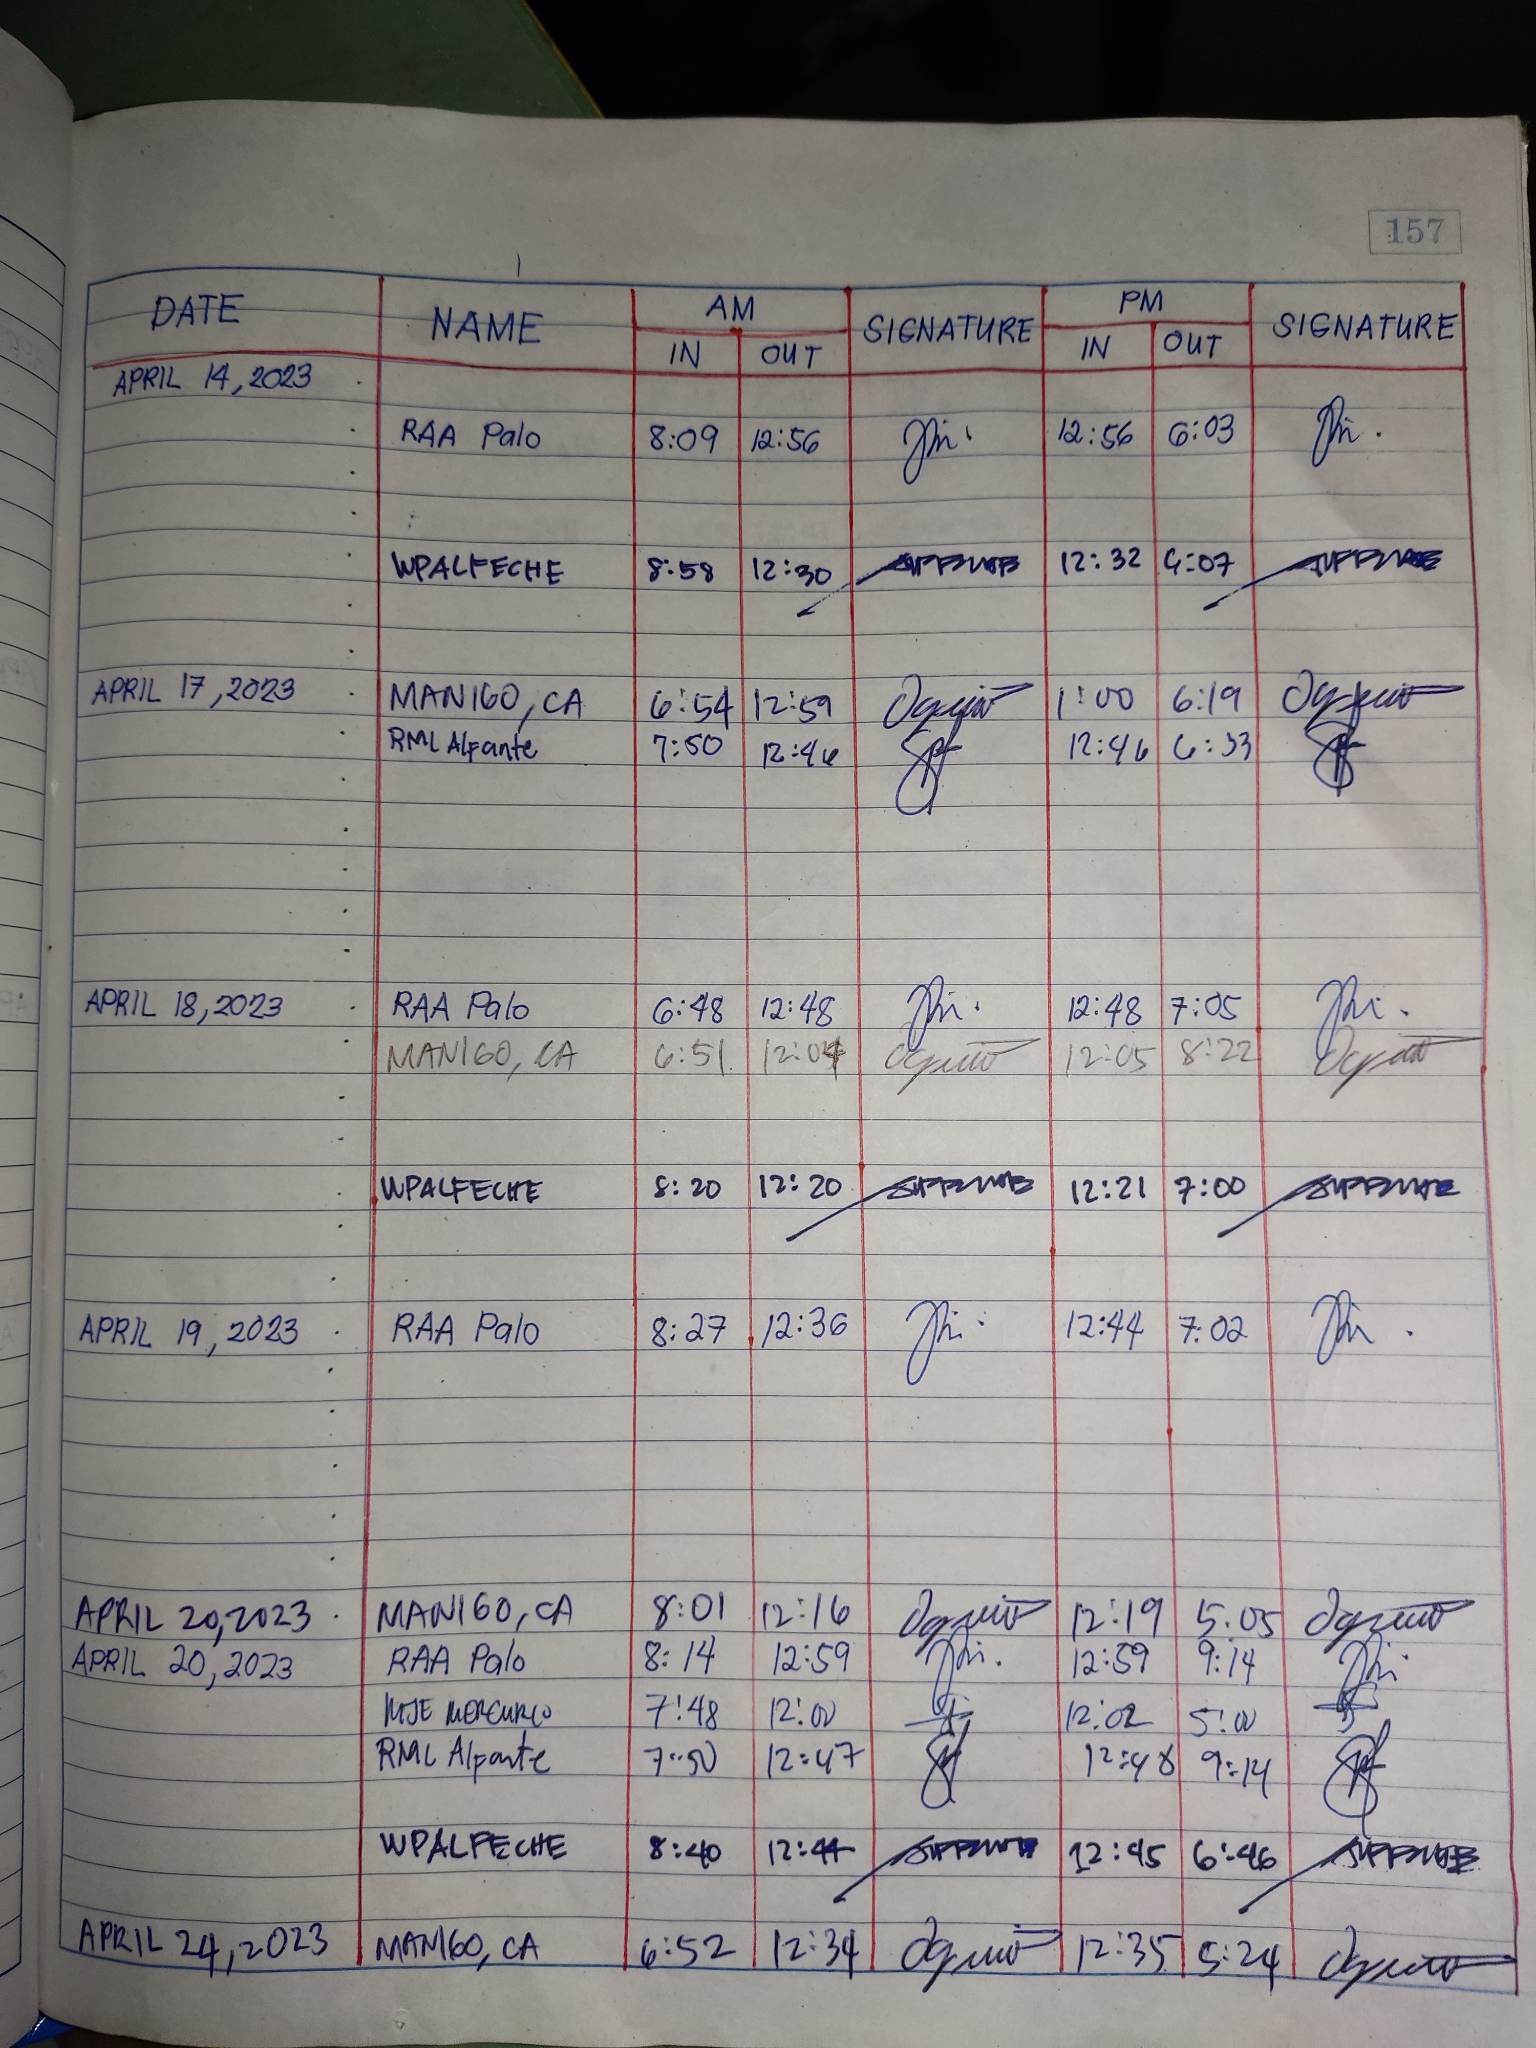 157
DATE NAME AM SIGNATURE PM SIGNATURE
IN OUT IN OUT
APRIL 14, 2023
RAA Palo 8:09 12:56 12:56 6:03
WPALFECHE 8:58 12:30 12:32 6:07
APRIL 17, 2023 MANIGO, CA 6:54 12:59 1:00 6:19
RML Alpante 7:50 12:46 12:46 6:33
APRIL 18, 2023 RAA Palo 6:48 12:48 12:48 7:05
MANIGO, CA 6:51 12:04 12:05 8:22
WPALFECHE 8:20 12:20 12:21 7:00
APRIL 19, 2023 RAA Palo 8:27 12:36 12:44 7:02
APRIL 20, 2023 MANIGO, CA 8:01 12:16 12:19 5:05
APRIL 20, 2023 RAA Palo 8:14 12:59 12:59 9:14
7:48 12:00 12:02 5:00
RML Alpante 7:50 12:47 12:48 9:14
WPALFECHE 8:40 12:44 12:45 6:46
APRIL 24, 2023 MANIGO, CA 6:52 12:34 12:35 5:24